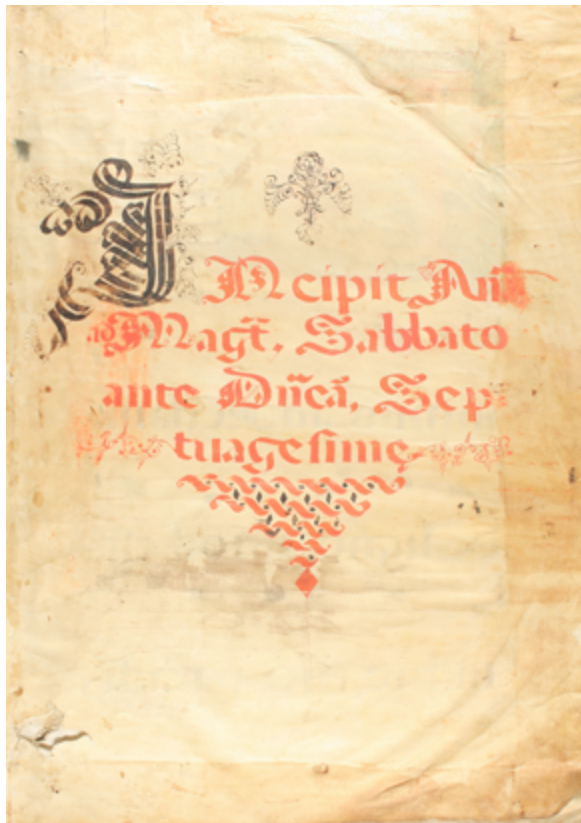 INcipit Añ
ad Magt̃. Sabbato
ante Dñcã, Sep-
tuagesime